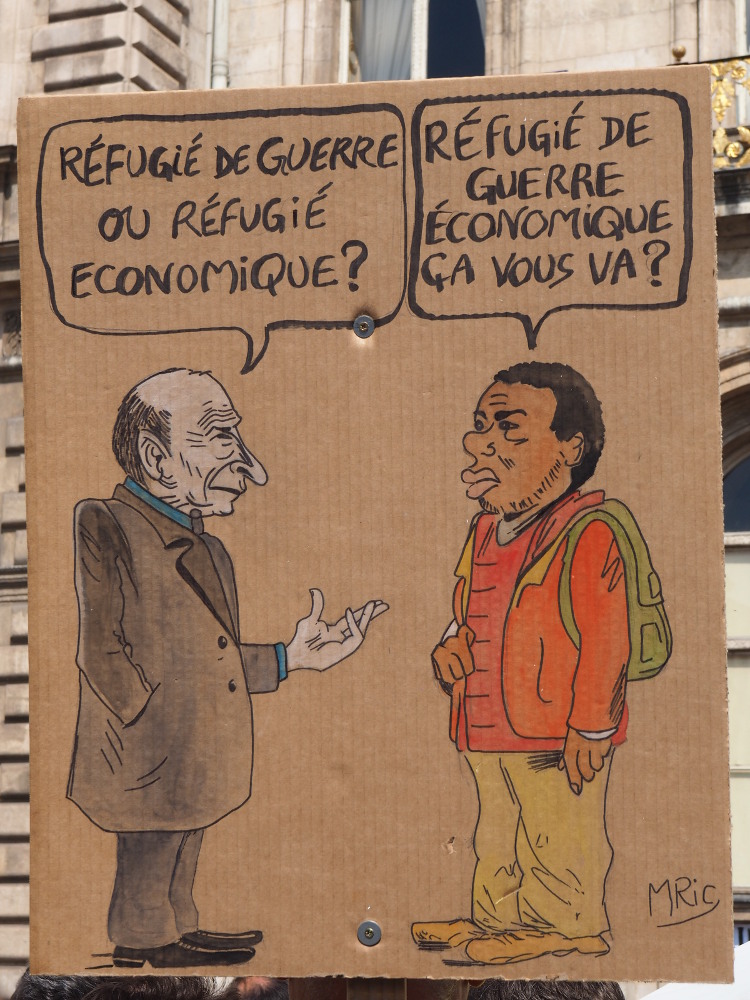 RÉFUGIÉ DE GUERRE
OU RÉFUGIÉ
ECONOMIQUE?
RÉFUGIÉ DE
GUERRE
ÉCONOMIQUE
ÇA VOUS VA?
MRic